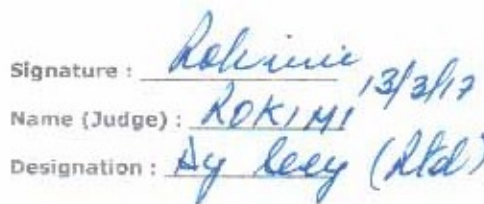 Signature : Rokimi 13/3/17
Name (Judge) : ROKIMI
Designation : Dy Secy (Rtd)